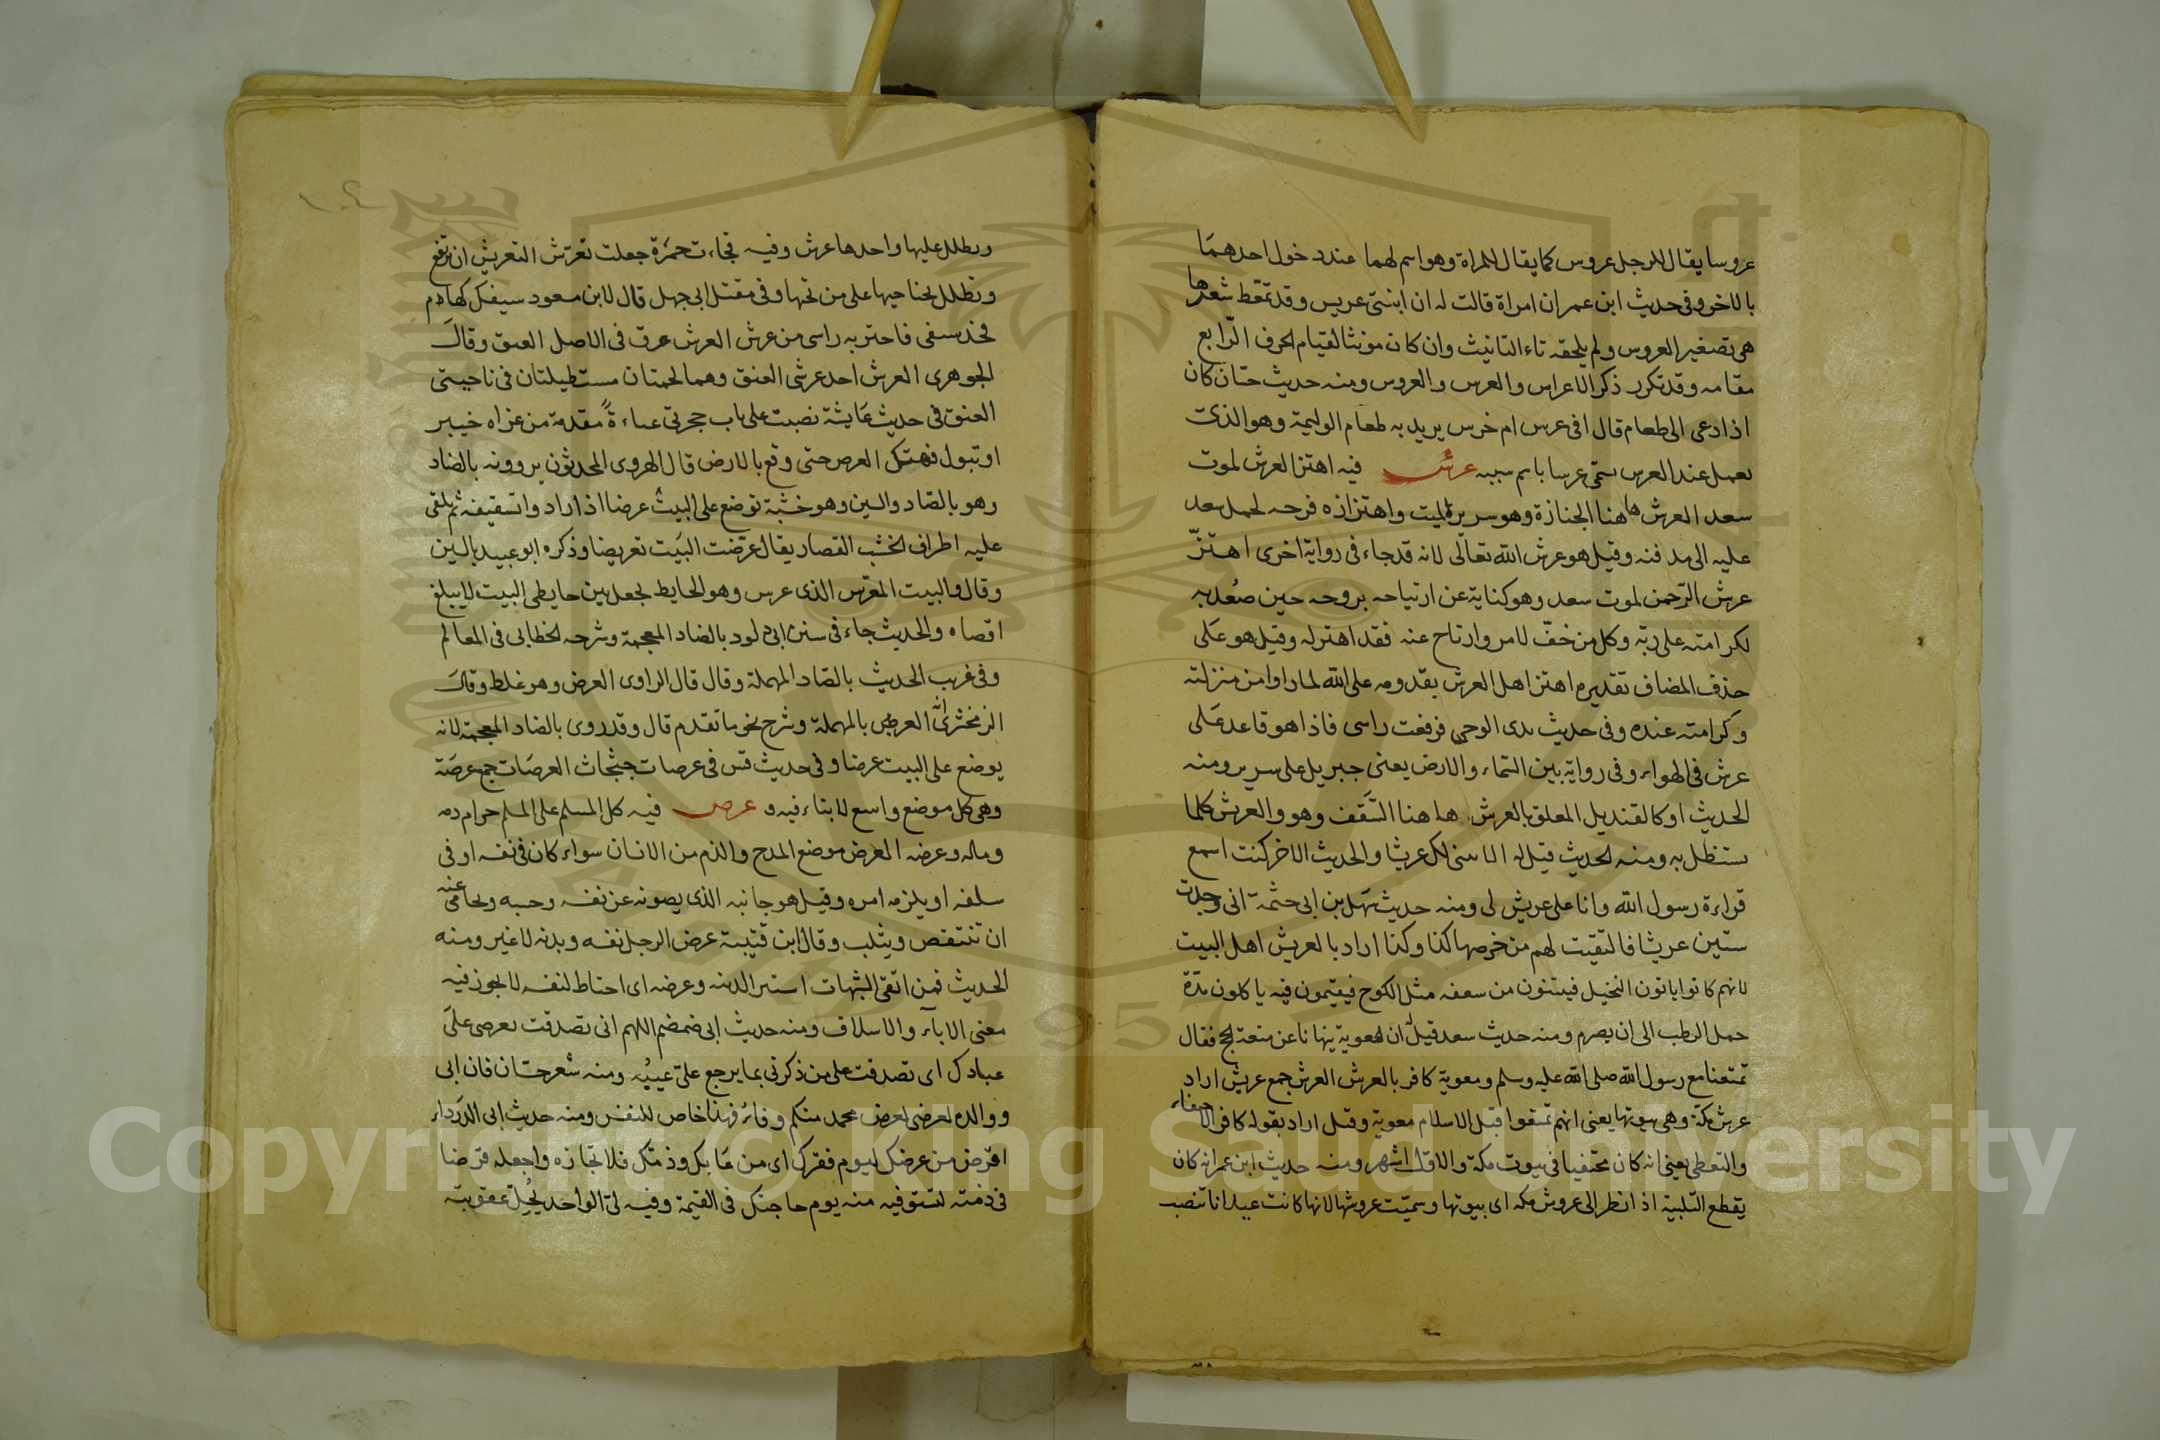 عروسا يقال للرجل عروس كما يقال للمراة وهو اسم لهما عند دخول احدهما
بالاخر وفى حديث ابن عمر ان امراة قالت له ان ابنتى عريس وقد تمعط شعرها
هى تصغير العروس ولم يلحقه تاء التانيث وان كان مونثا لقيام الحرف الرابع
مقامه وقد تكرر ذكر الاعراس والعرس والعروس ومنه حديث حسان كان
اذا دعى الى طعام قال افى عرس ام خرس يريد به طعام الوليمة وهو الذى
يعمل عند العرس سمى عرسا باسم سببه عرش فيه اهتز العرش لموت
سعد العرش هاهنا الجنازة وهو سرير الميت واهتزازه فرحه لحمل سعد
عليه الى مدفنه وقيل هو عرش الله تعالى لانه قد جاء فى رواية اخرى اهتز
عرش الرحمن لموت سعد وهو كناية عن ارتياحه بروحه حين صُعد به
لكرامته على ربه وكل من خف لامر وارتاح عنه فقد اهتز له وقيل هو على
حذف المضاف تقديره اهتز اهل العرش بقدومه على الله لما راوا من منزلته
وكرامته عنده وفى حديث بدى الوحى فرفعت راسى فاذا هو قاعد على
عرش فى الهواء وفى رواية بين السماء والارض يعنى جبريل على سرير ومنه
الحديث او كالقنديل المعلق بالعرش هاهنا السقف وهو والعرش كلما
يستظل به ومنه الحديث قيل له الا نبنى لك عريشا والحديث الاخر كنت اسمع
قراءة رسول الله وانا على عريش لى ومنه حديث سهل بن ابى حثمة انى وجدت
ستين عريشا فالتقيت لهم من خرصها كذا وكذا اراد بالعريش اهل البيت
لانهم كانوا ياتون النخيل فيبتنون من سعفه مثل الكوخ فيقيمون فيه ياكلون مدة
حمل الرطب الى ان يصرم ومنه حديث سعد قيل له ان معوية ينهانا عن متعة الحج فقال
تمتعنا مع رسول الله صلى الله عليه وسلم ومعوية كافر بالعرش العرش جمع عريش اراد
عرش مكة وهى بيوتها يعنى انهم تمتعوا قبل الاسلام معوية وقيل اراد بقوله كافر الاختفاء
والتغطى يعنى انه كان مختفيا فى بيوت مكة والاول اشهر ومنه حديث ابن عمر انه كان
يقطع التلبية اذا نظر الى عروش مكه اى بيوتها وسميت عروشا لانها كانت عيدانا تنصب
ويظلل عليها واحدها عرش وفيه فجاءت حمرة جعلت تعرش التعريش ان ترفع
وتظلل بجناحيها على من تحتها وفى مقتل ابى جهل قال لابن مسعود سيفك كهام
فخذ سيفى فاحتز به راسى من عرش العرش عرق فى الاصل العنق وقال
الجوهرى العرش احد عرشى العنق وهما لحمتان مستطيلتان فى ناحيتى
العنق فى حديث عايشة نصبت على باب حجرتى عباءة مقدمه من غزاه خيبر
او تبوك فهتك العرص حتى وقع بالارض قال الهروى المحدثون يروونه بالضاد
وهو بالصاد والسين وهو خشبة توضع على البيت عرضا اذا اراد واتسقيفه ثم يلقى
عليه اطراف الخشب القصار يقال عرصت البيت تعريصا وذكره ابو عبيد بالسين
وقال والبيت المعرس الذى عرس وهو الحايط يجعل بين حايطى البيت لا يبلغ
اقصاه والحديث جاء فى سنن ابى داود بالضاد المعجمة وشرحه الخطابى فى المعالم
وفى غريب الحديث بالصاد المهملة وقال قال الراوى العرض وهو غلط وقال
الزمخشرى انه العرص بالمهملة وشرح نحو ما تقدم قال وقد روى بالضاد المعجمة لانه
يوضع على البيت عرضا وفى حديث قس فى عرصات جثجاث العرصات جمع عرصة
وهى كل موضع واسع لا بناء فيه و عرض فيه كل المسلم على المسلم حرام دمه
وماله وعرضه العرض موضع المدح والذم من الانسان سواء كان فى نفسه او فى
سلفه او يلزمه امره وقيل هو جانبه الذى يصونه عن نفسه وحسبه ويحامى عنه
ان تنتقص ويثلب وقال ابن قتيبة عرض الرجل نفسه وبدنه لا غير ومنه
الحديث فمن اتقى الشبهات استبرا لدينه وعرضه اى احتاط لنفسه لا يجوز فيه
معنى الاباء والاسلاف ومنه حديث ابى ضمضم اللهم انى تصدقت بعرضى على
عبادك اى تصدقت على من ذكرنى بما يرجع على عيبه ومنه شعر حسان فان ابى
ووالده لعرضى لعرض محمد منكم وقاء فهذا خاص للنفس ومنه حديث ابى الدرداء
اقرض من عرضك ليوم فقرك اى من عابك وذمك فلا تجازه واجعله قرضا
فى ذمته لتستوفيه منه يوم حاجتك فى القيمة وفيه لى الواحد يُحِلّ عقوبته